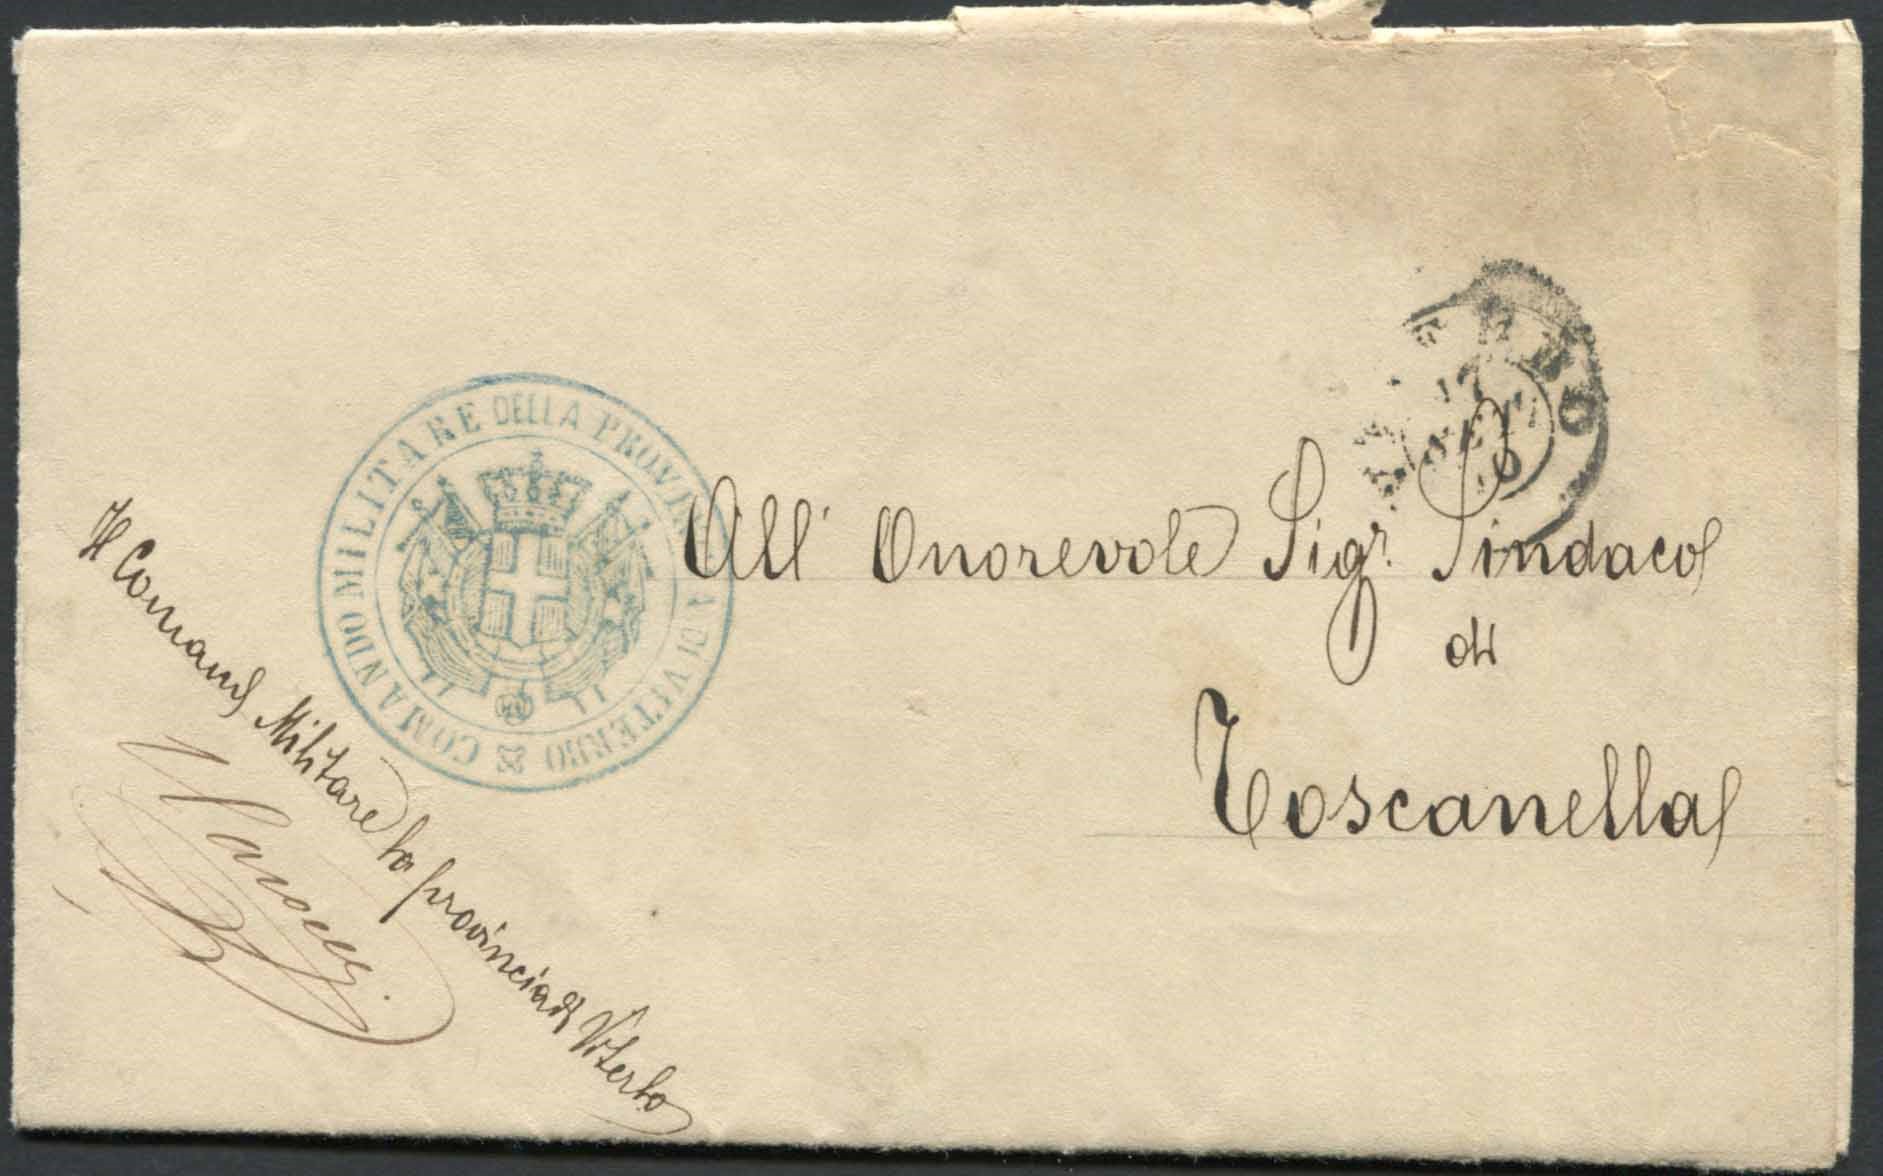 COMANDO MILITARE DELLA PROVINCIA DI VITERBO
All' Onorevole Sigr. Sindaco
di
Toscanella
Il Comand Militare la provincia di Viterbo
17